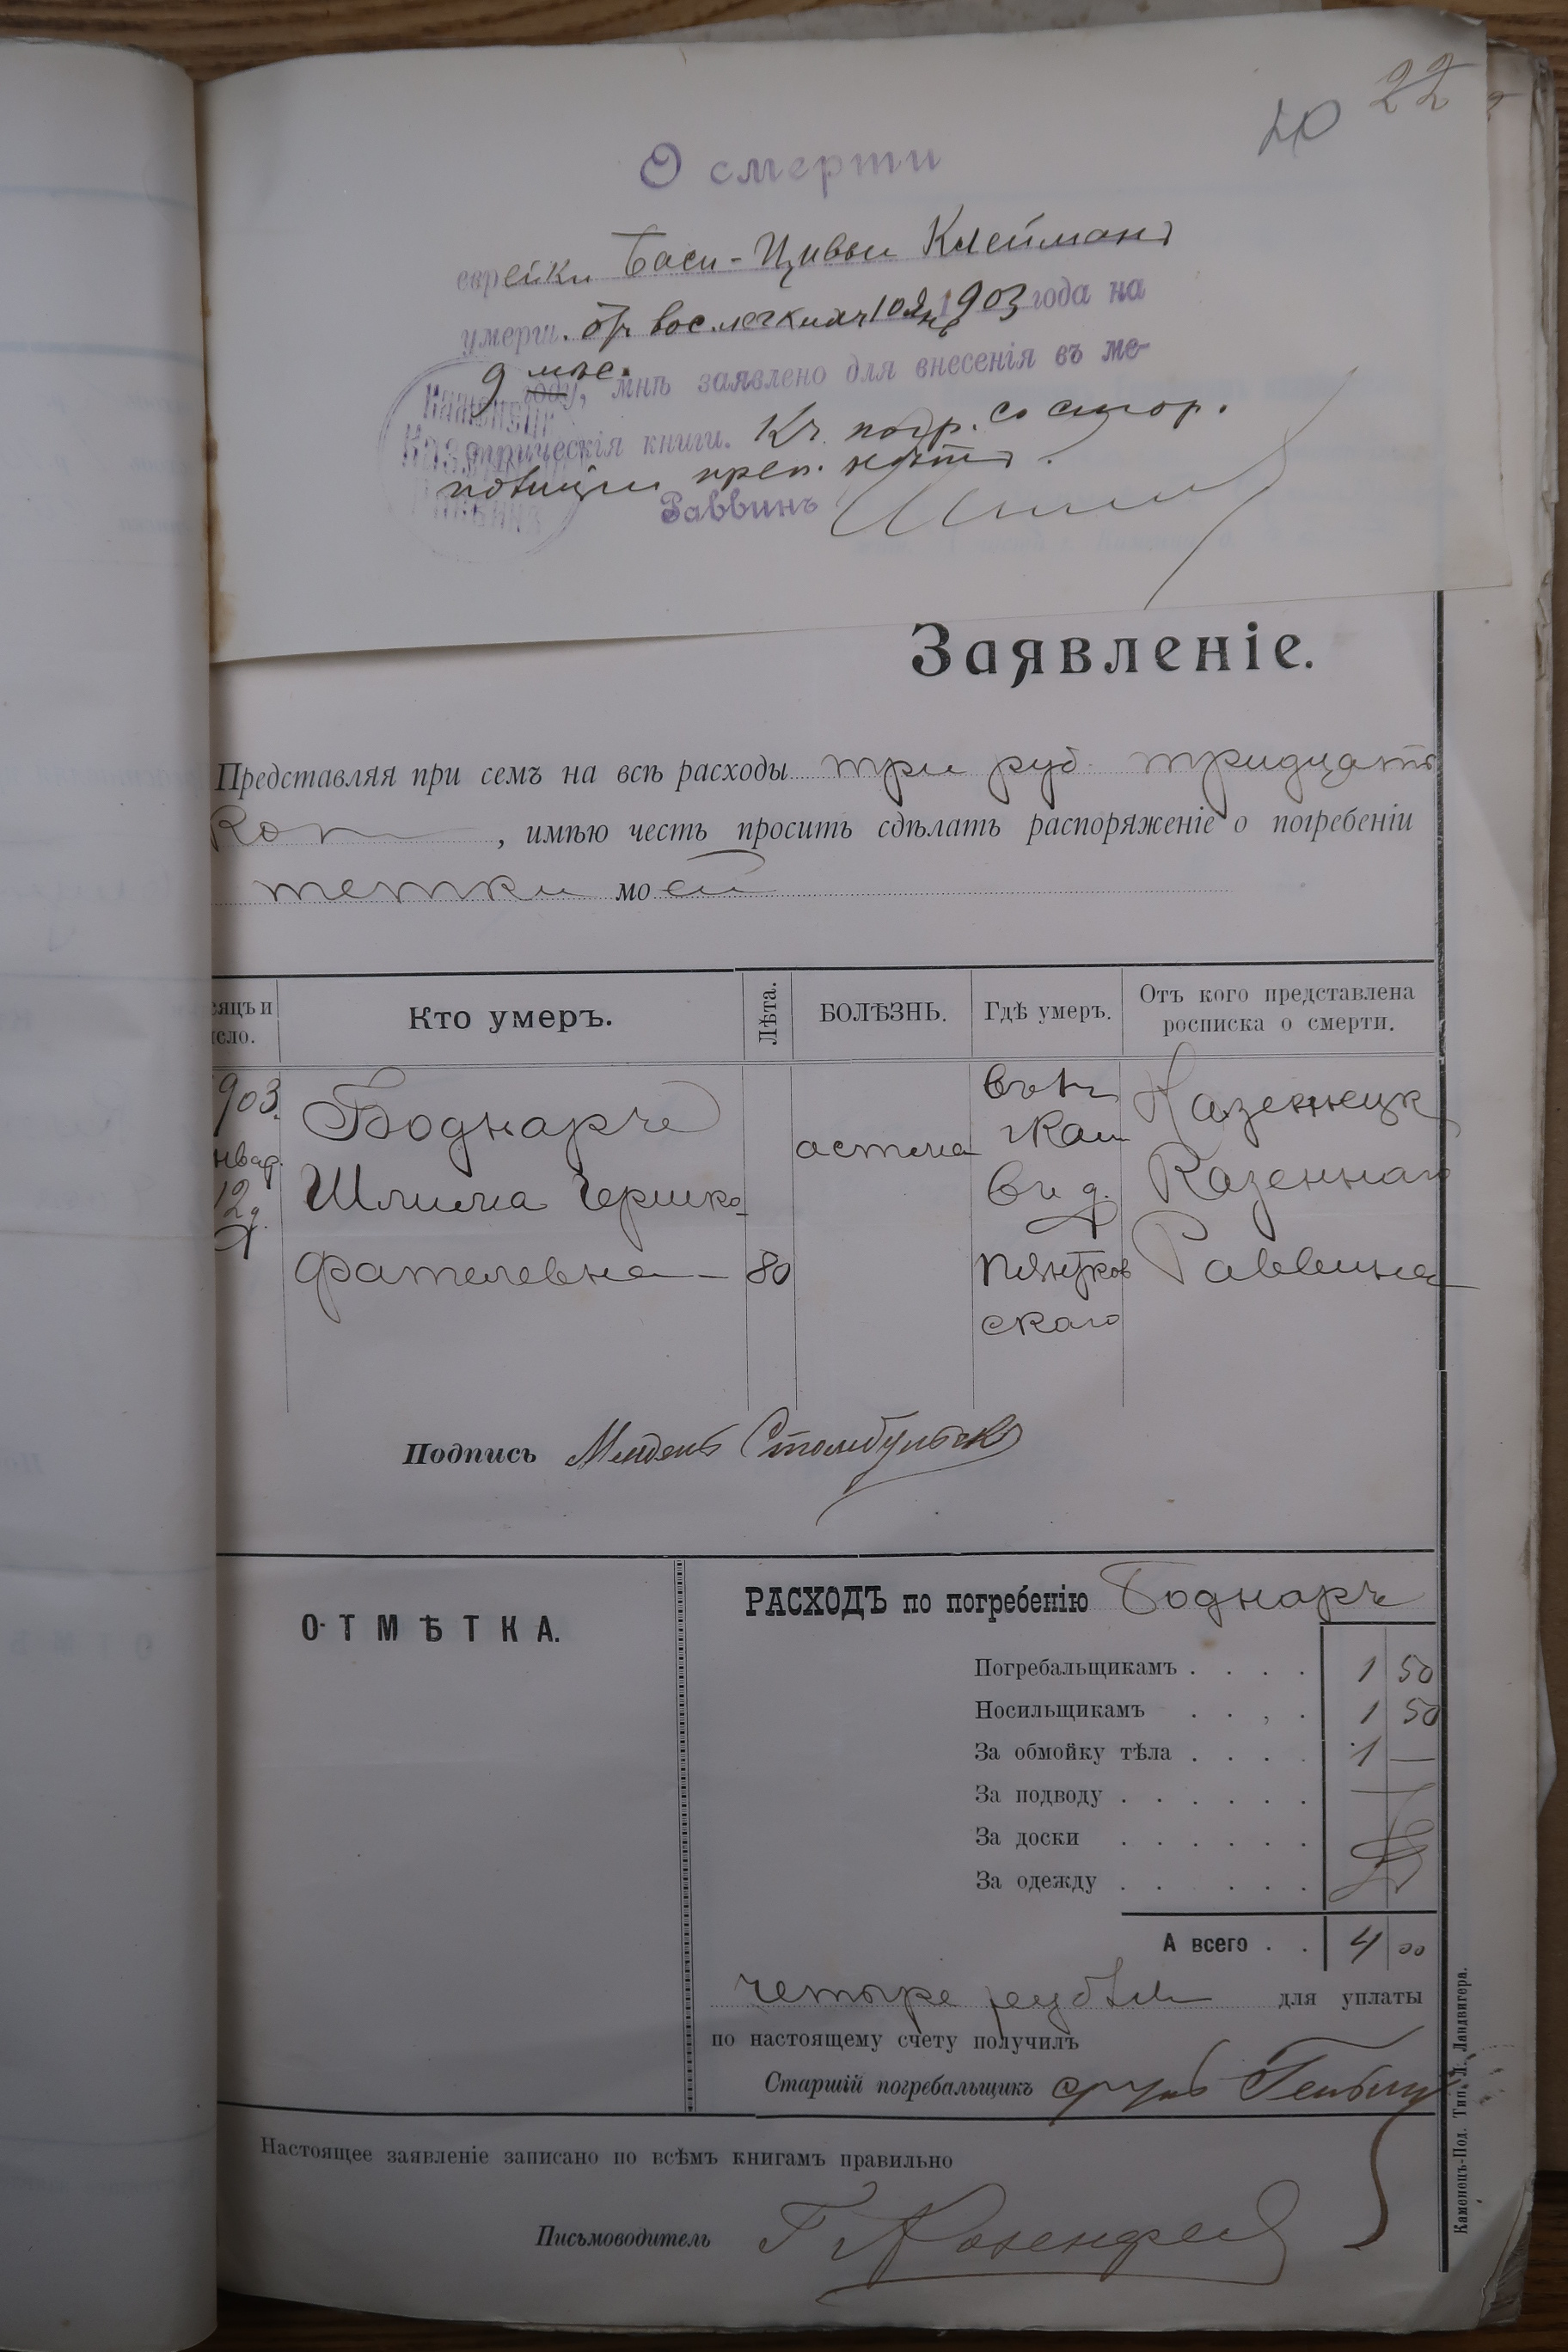 22
О смерти
еврейки Баси-Цивьи Клейманъ
умерш. отъ восп. легкихъ 10 Янв 1903 года на
9 мѣс. году, мнѣ заявлено для внесенія въ ме-
трическія книги. Къ погр. со стор.
полиціи преп. нѣтъ.
Раввинъ
Заявленіе.
Представляя при семъ на всѣ расходы три руб тридцать
коп , имѣю честь просить сдѣлать распоряженіе о погребеніи
тетки моей
сяцъ и
сло.
Кто умеръ.
Лѣта.
БОЛѢЗНЬ.
Гдѣ умеръ.
Отъ кого представлена
росписка о смерти.
903.
нвар.
12 д.
Боднаръ
Шлима Гершко-
фателевна — 80
астма
въ
вид.
скаго
Казеннаго
Раввина
Подпись Мендель Стамбульскъ
ОТМѢТКА.
РАСХОДЪ по погребенію Боднаръ
Погребальщикамъ . . . . 1 50
Носильщикамъ . . , . 1 50
За обмойку тѣла . . . . 1 —
За подводу . . . . . . —
За доски . . . . . .
За одежду . . . . . .
А всего . . 4 00
четыре рубли для уплаты
по настоящему счету получилъ
Старшій погребальщикъ
Настоящее заявленіе записано по всѣмъ книгамъ правильно
Письмоводитель Г Розенфельд
Каменецъ-Под. Тип. Л. Ландвигера.